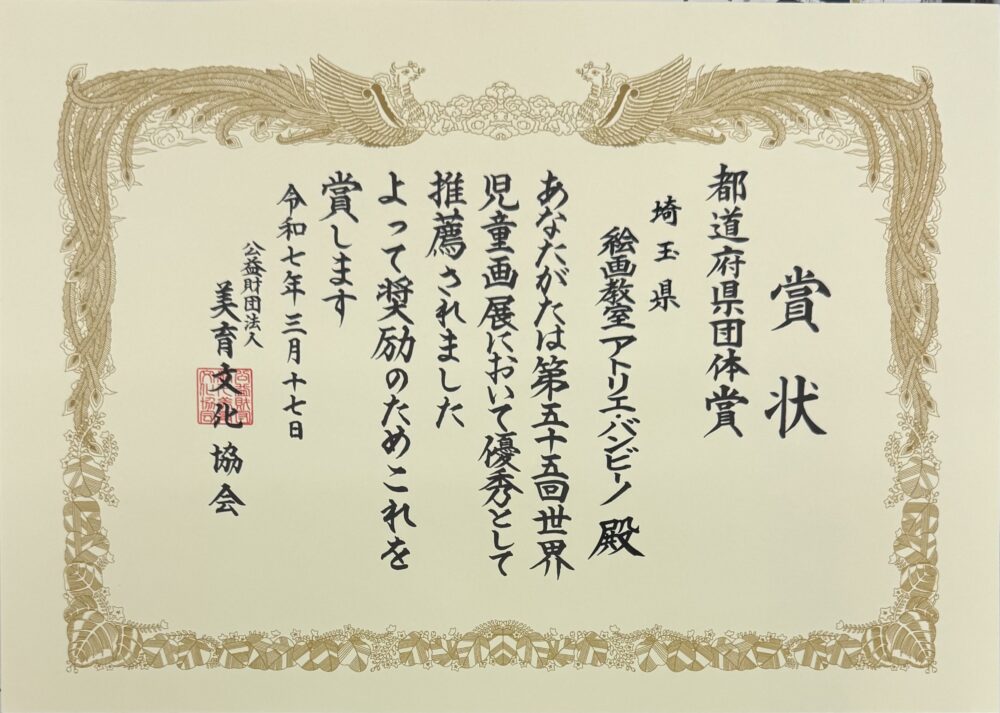 賞状
都道府県団体賞
埼玉県
絵画教室アトリエ・バンビーノ 殿
あなたがたは第五十五回世界
児童画展において優秀として
推薦されました
よって奨励のためこれを
賞します
令和七年三月十七日
公益財団法人
美育文化協会